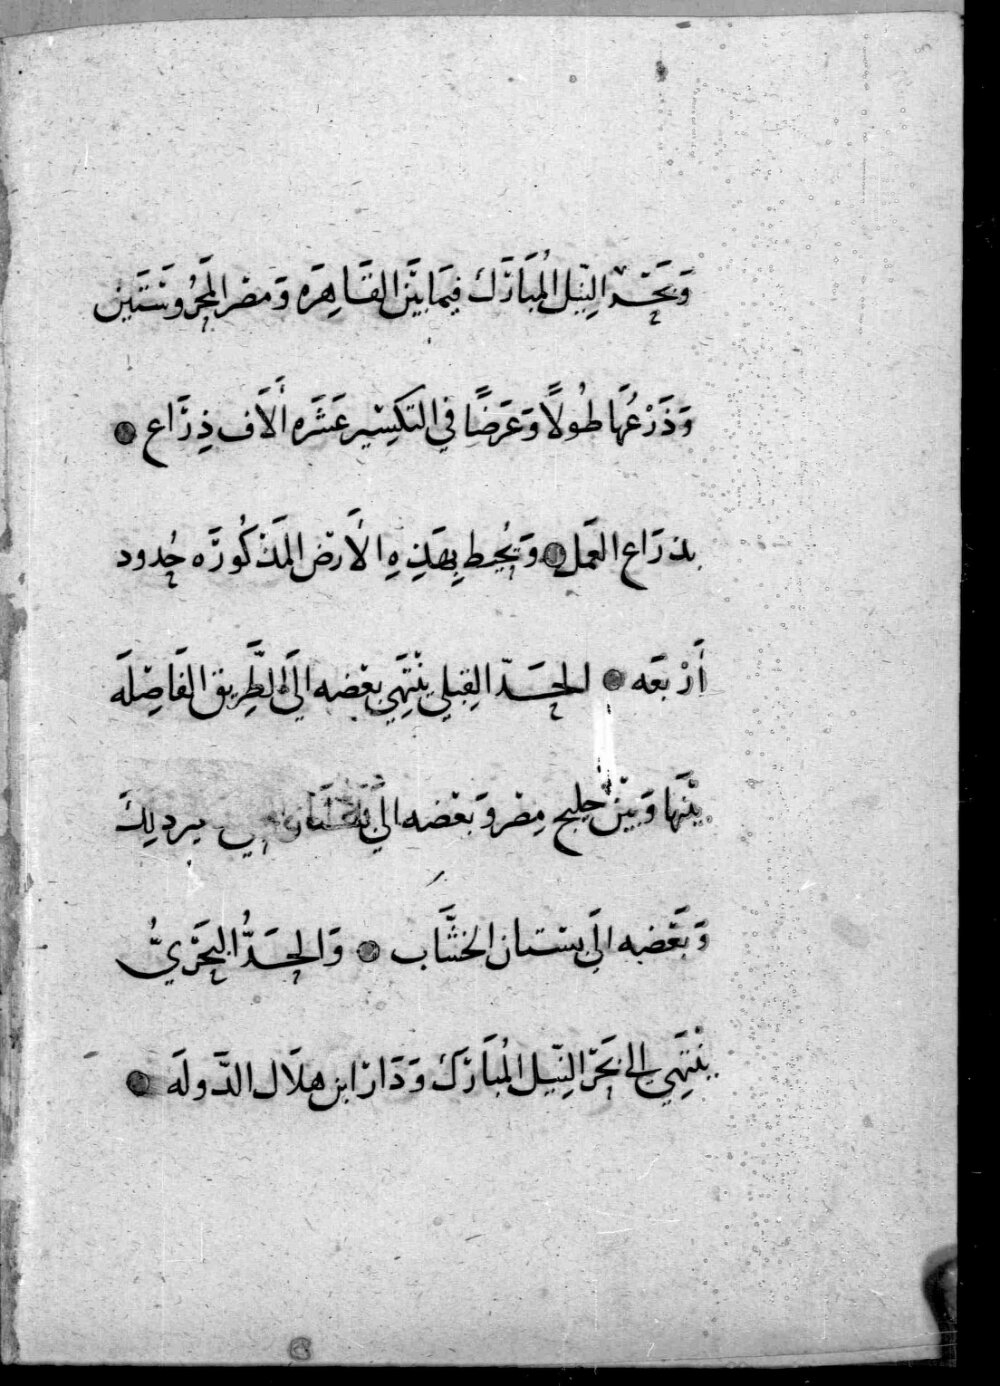 وَبَحْد النِّيل المُبَارَك فِيمَا بَيْنَ القَاهِرَه وَمصْر المَحْرُوسَتَين
وَذَرْعُهَا طُولًا وَعَرضًا في التكسِير عَشَرَه أَلَاف ذِرَاع
بذرَاع العَمَل وَيُحيط بِهَذِهِ الأَرض المَذكُورَه حُدود
أَرْبعَه الحَدّ القِبلي يَنْتَهِي بعْضه إلَى الطَّرِيق الفَاصِلَه
بَيْنَهَا وَبَيْنَ خليج مِصْر وَبَعْضه إلَى
وَبَعْضه إلَى بستان الخشَّاب وَالحَدُّ البَحْريُّ
يَنْتَهِي إلى بَحْر النِّيل المُبَارَك وَدَار ابن هلَال الدَّولَه